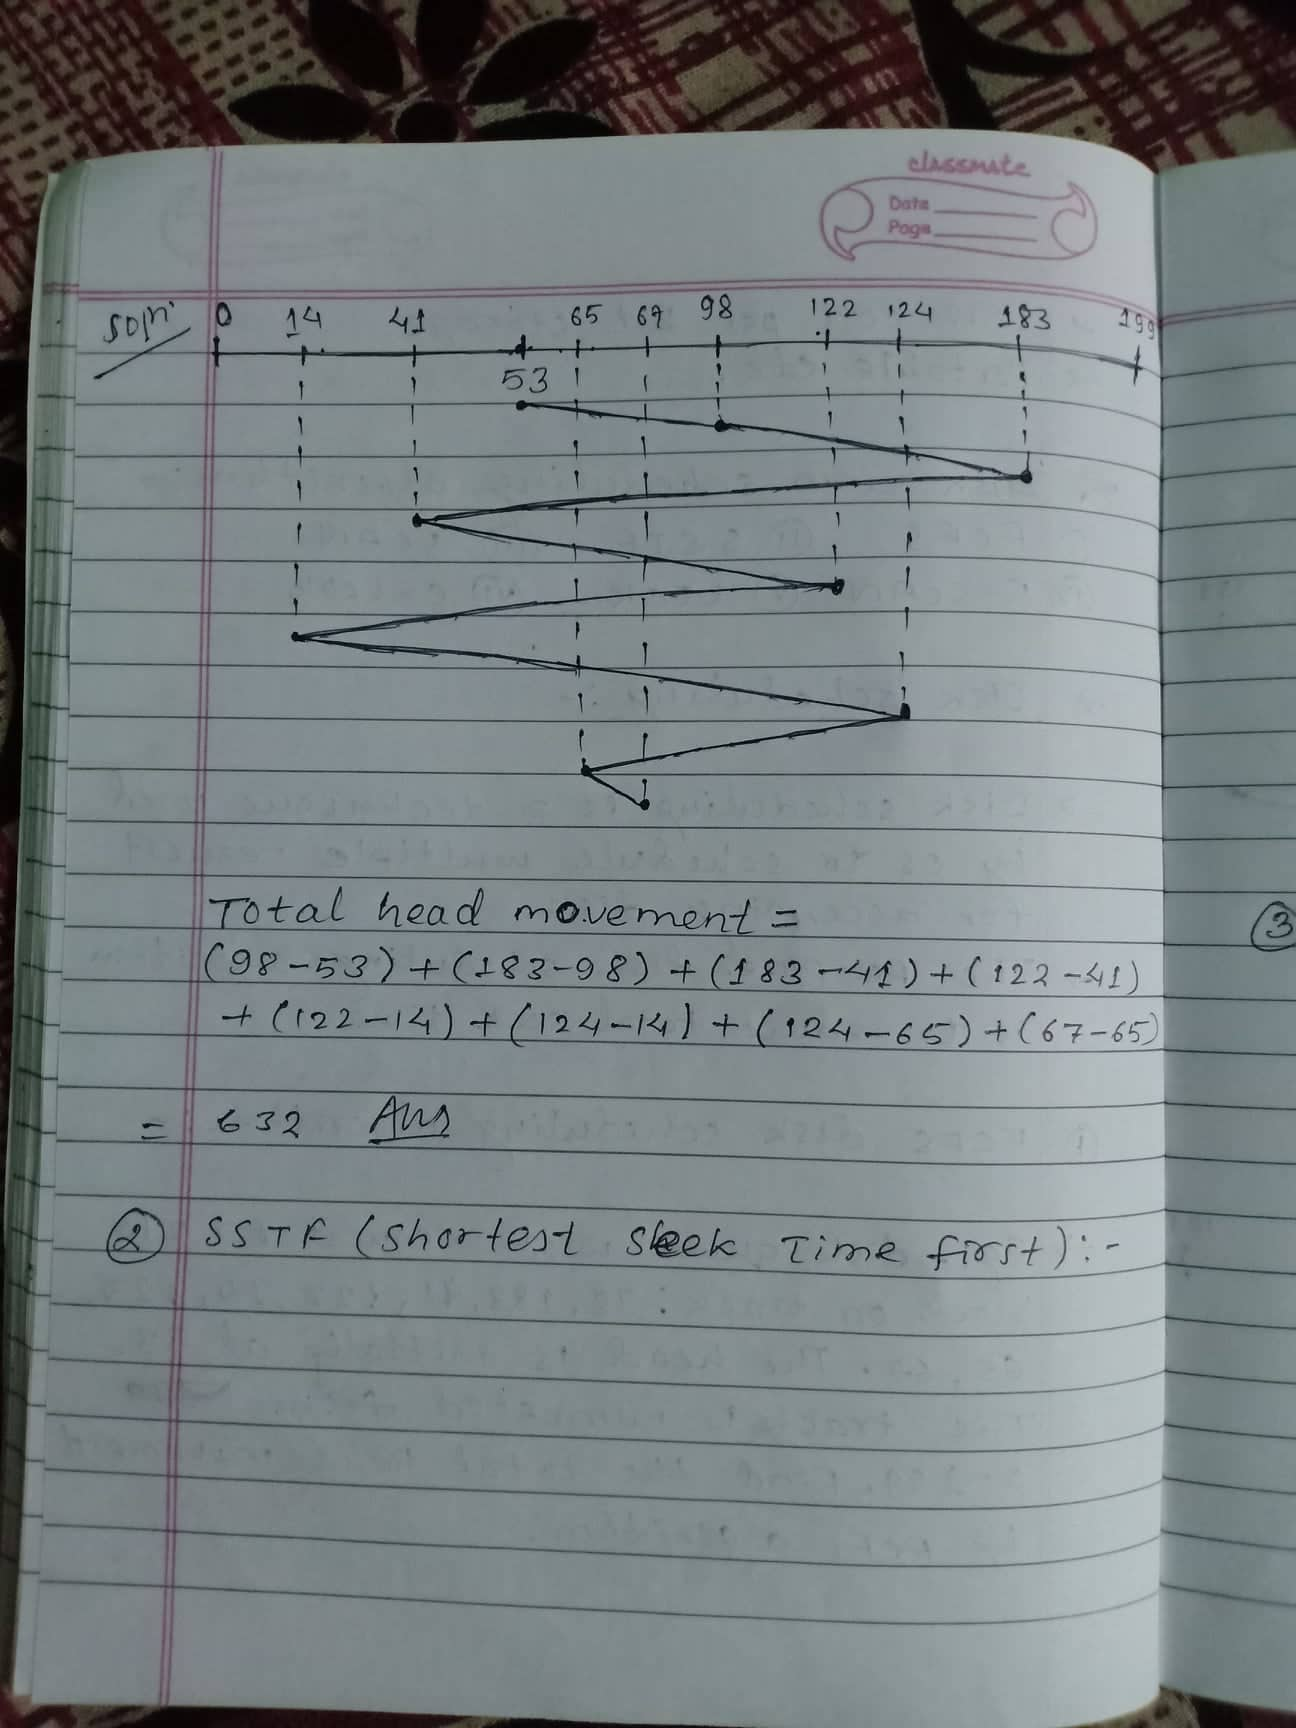 classmate
Date
Page
soln.
0 14 41 65 67 98 122 124 183 199
53
Total head movement =
(98-53) + (183-98) + (183-41) + (122-41)
+ (122-14) + (124-14) + (124-65) + (67-65)
= 632 Ans
② SSTF (Shortest Seek Time first):-
③